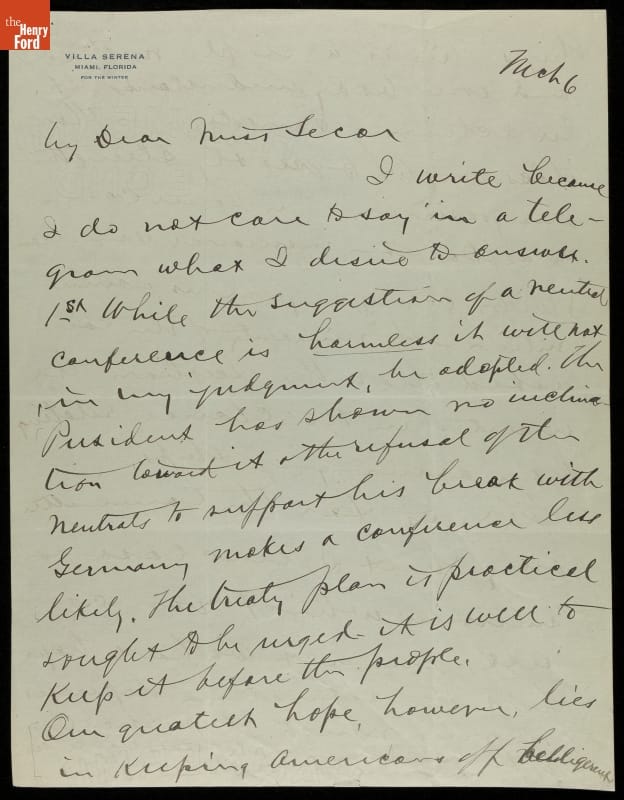 the
Henry
Ford
VILLA SERENA
MIAMI, FLORIDA
FOR THE WINTER
Mch 6
My Dear Miss Secor
I write because
I do not care to say in a tele-
gram what I desire to answer.
1st While the suggestion of a neutral
conference is harmless it will not
, in my judgment, be adopted. The
President has shown no inclina-
tion toward it & the refusal of the
neutrals to support his break with
Germany makes a conference less
likely. The treaty plan is practical
& ought to be urged - it is well to
keep it before the people.
Our greatest hope, however, lies
in keeping Americans off belligerent